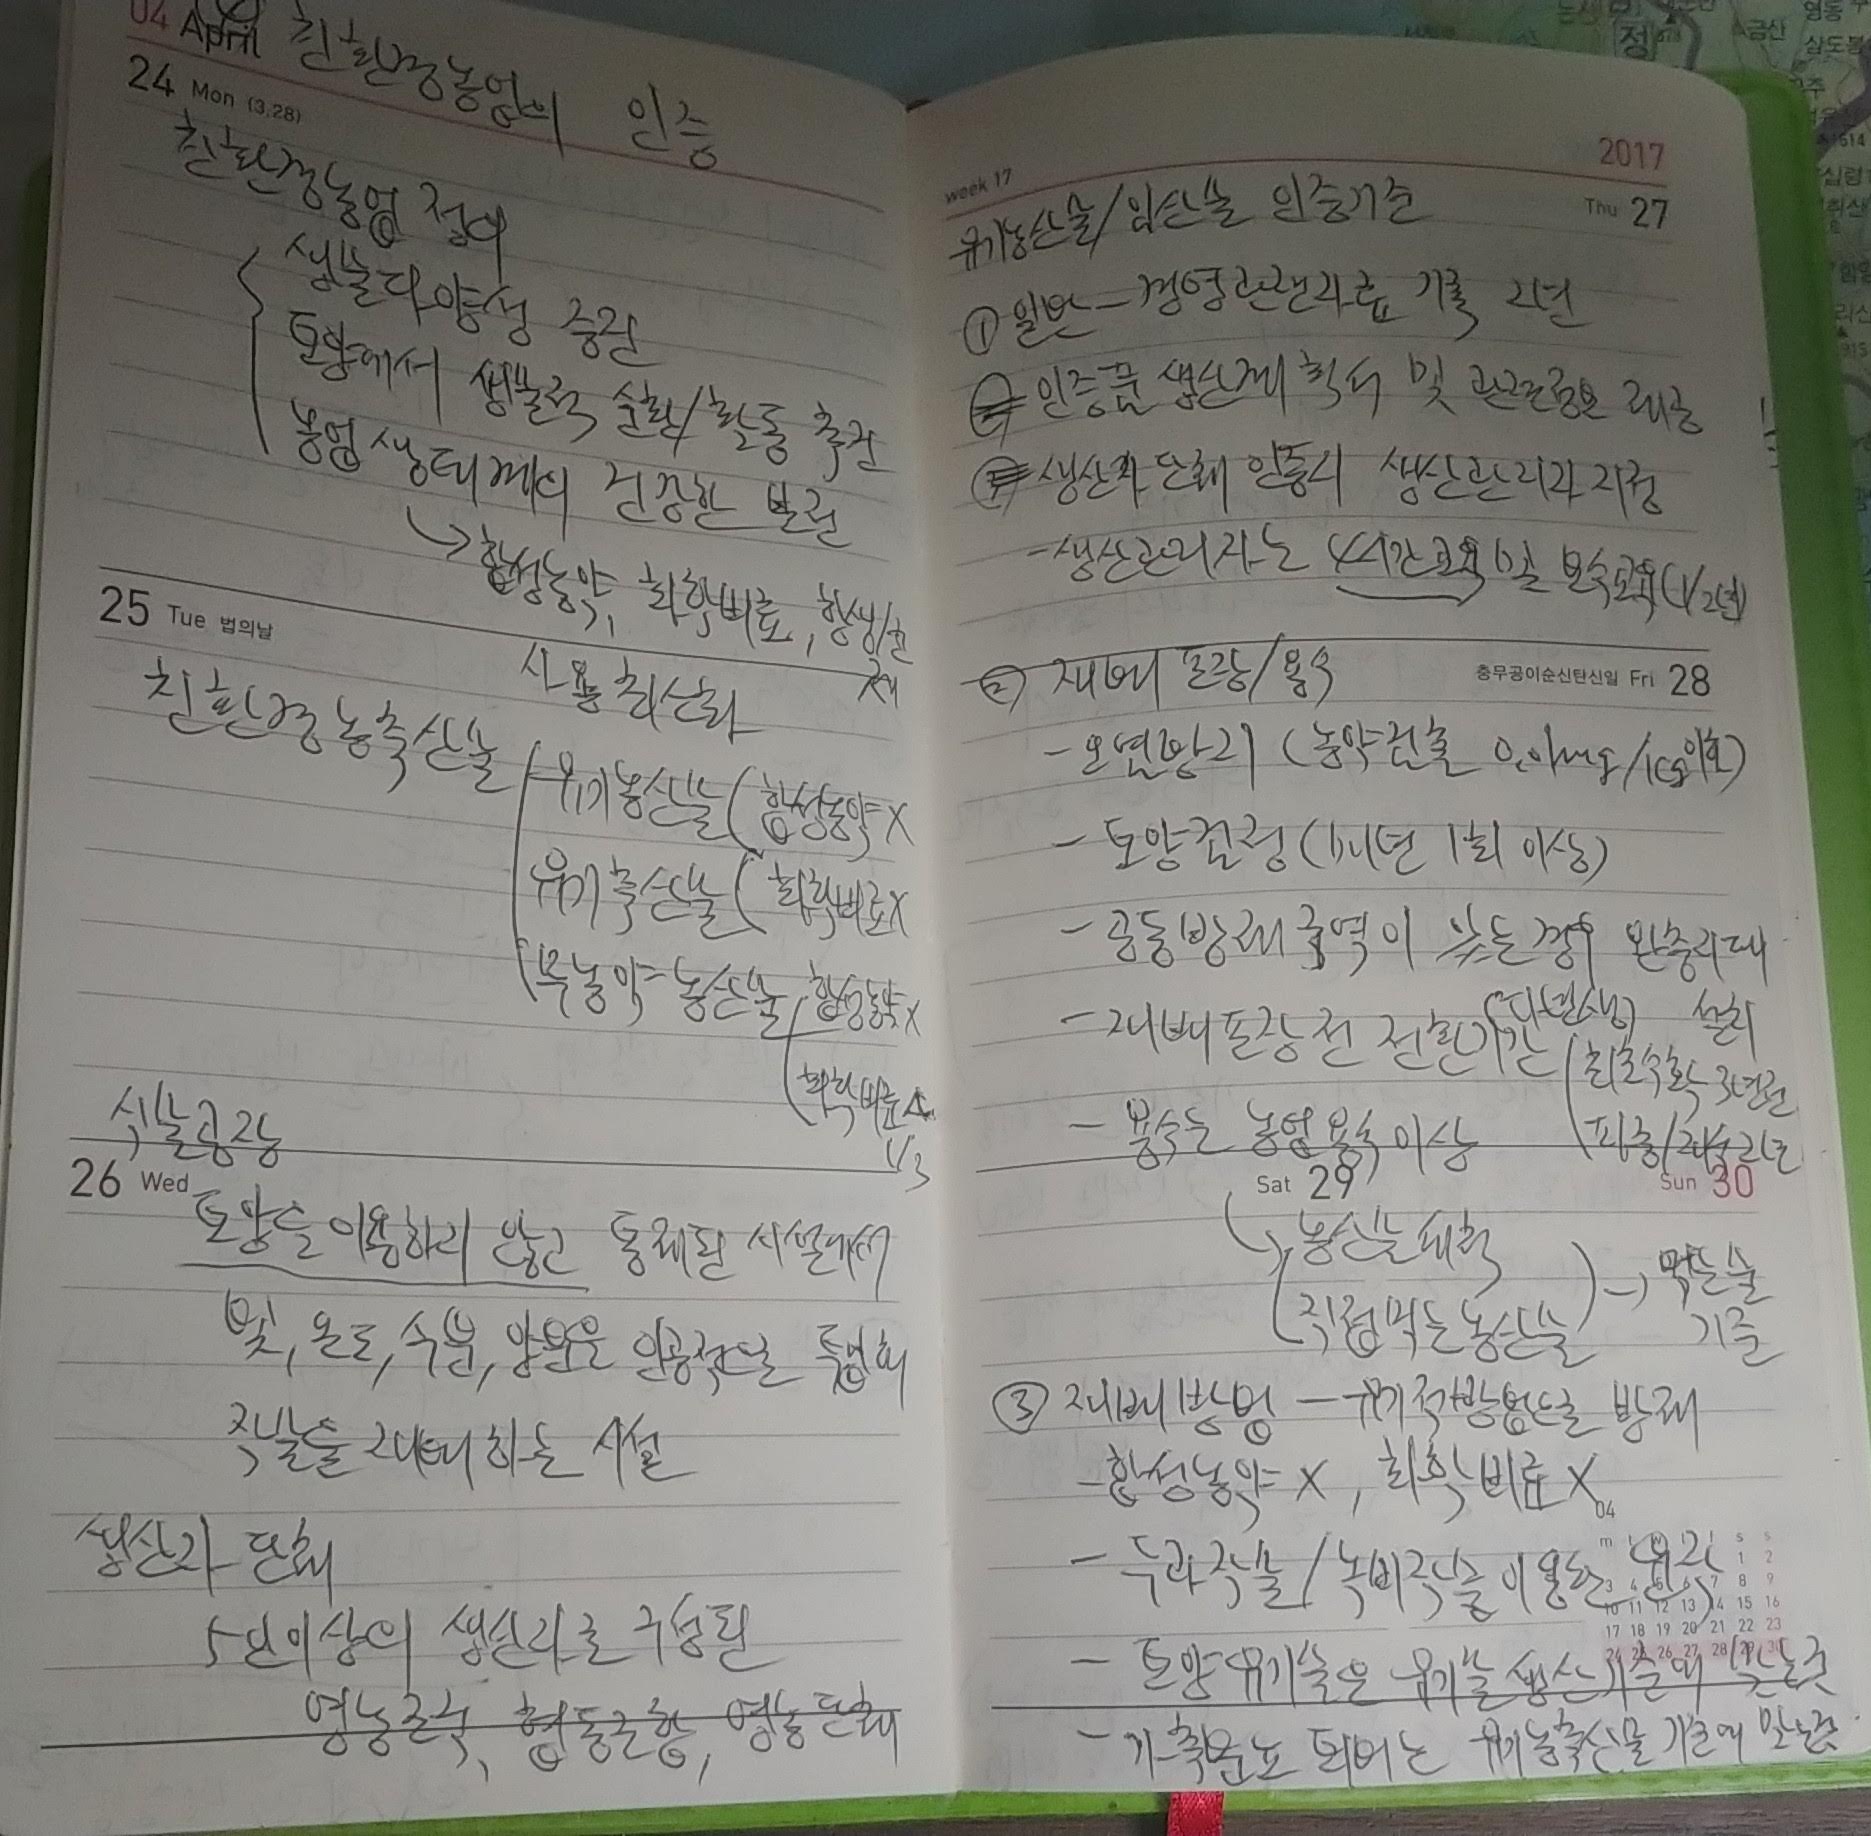 04 April 친환경농업의 인증
24 Mon (3.28)
친환경농업 정의
생물다양성 증진
토양에서 생물적 순환/활동 촉진
농업생태계의 건강한 보전
→합성농약, 화학비료, 항생/균제
사용 최소화
25 Tue 법의날
친환경농축산물
유기농산물 (합성농약 X
유기축산물 (화학비료 X
무농약 농산물 합성농약 X
화학비료 △
1/3
식물공장
26 Wed
토양을 이용하지 않고 통제된 시설에서
빛, 온도, 수분, 양분을 인공적으로 투입해
작물을 재배하는 시설
생산자 단체
5인이상의 생산자로 구성된
영농조직, 협동조합, 영농단체
2017
week 17
Thu 27
유기농산물/임산물 인증기준
① 일반 - 경영관련자료 기록 2년
인증품 생산계획서 및 관련정보 제공
생산자단체 인증시 생산관리자 지정
- 생산관리자는 4시간교육 및 보수교육(1/2년)
충무공이순신탄신일 Fri 28
② 재배 포장/용수
- 오염방지 (농약검출 0.01mg/kg이하)
- 토양검정 (1년 1회 이상)
- 공동방제구역이 있는경우 완충지대
설치
- 재배포장전 전환기간 (다년생)
최초수확 3년전
파종/재식 2년
- 용수는 농업용수 이상
Sat 29
Sun 30
농산물세척
직접먹는농산물 → 먹는물
기준
③ 재배방법 - 유기적방법으로 방제
- 합성농약 X, 화학비료 X
- 두과작물/녹비작물 이용한 윤작
- 토양유기물은 유기물생산기준에 맞는것
- 가축분뇨 퇴비는 유기농축산물 기준에 맞는것
04
1 2
3 4 5 6 7 8 9
10 11 12 13 14 15 16
17 18 19 20 21 22 23
24 25 26 27 28 29 30